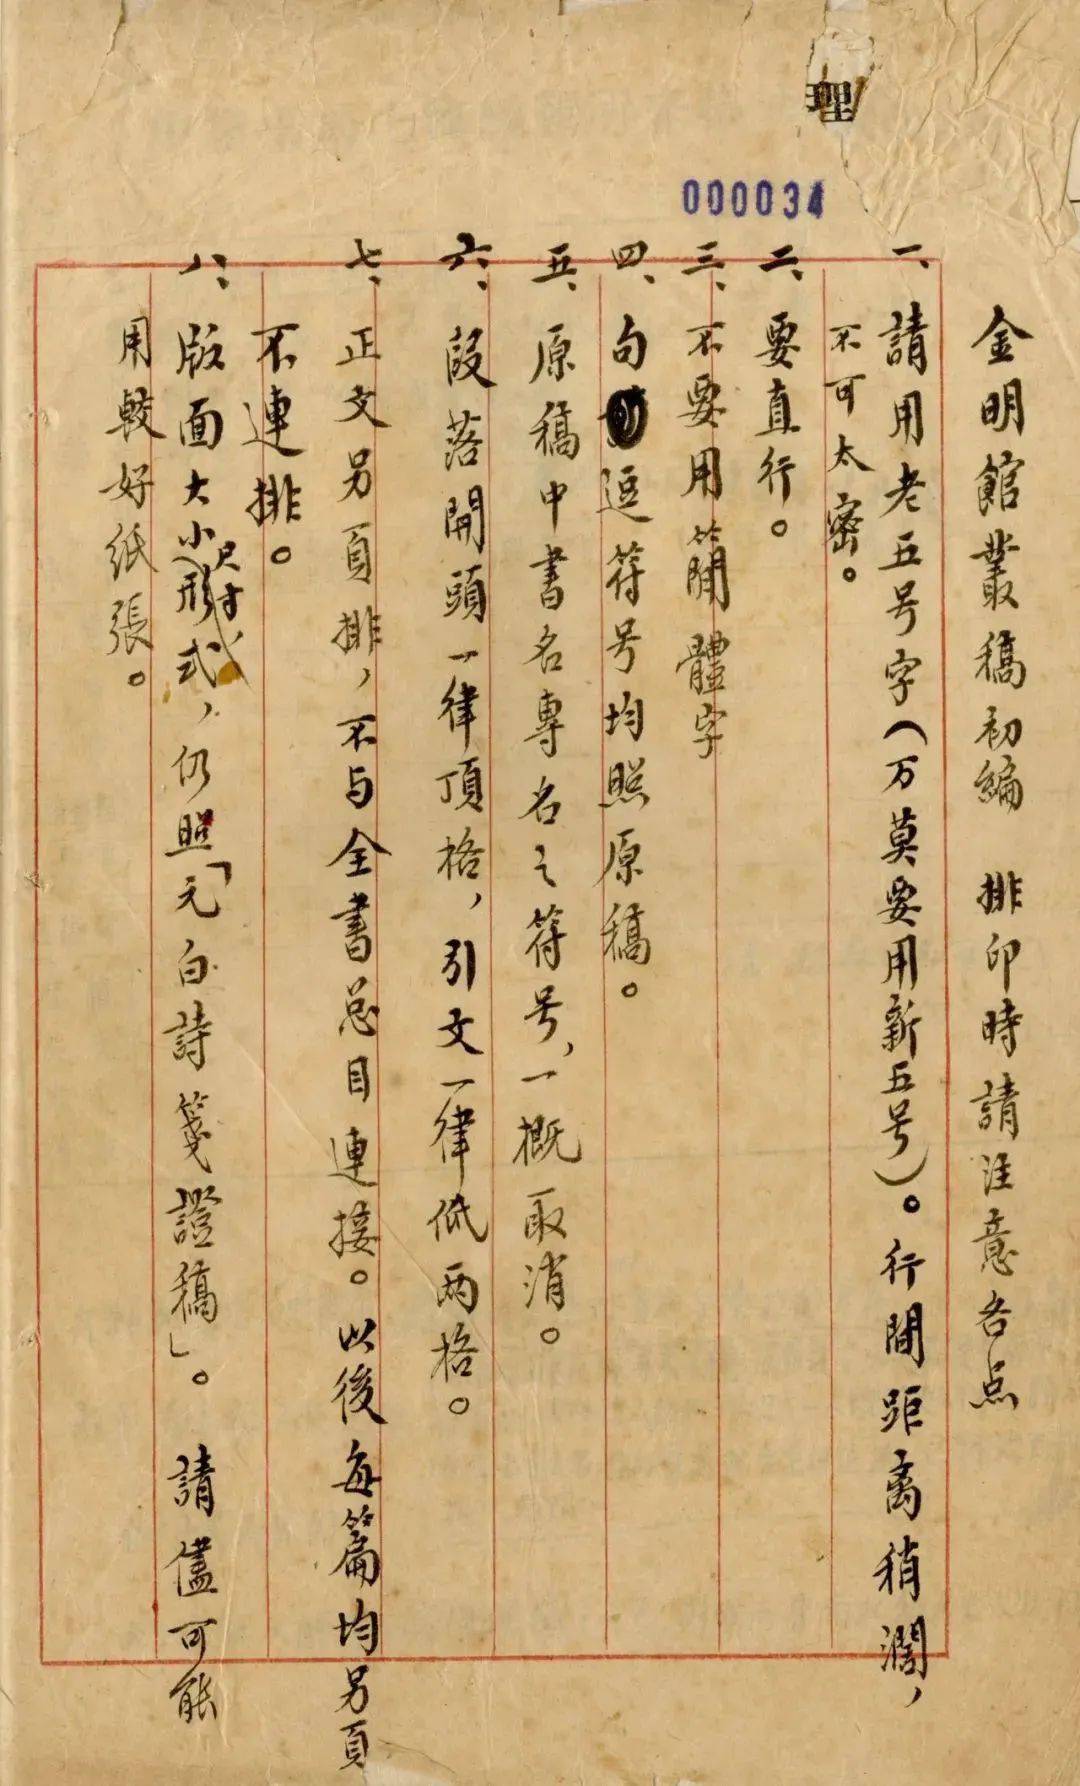 理
000034
金明館叢稿初編　排印時請注意各点
一、請用老五号字（万莫要用新五号）。行間距离稍濶，
不可太密。
二、要直行。
三、不要用簡體字
四、句逗符号均照原稿。
五、原稿中書名專名之符号，一概取消。
六、段落開頭一律頂格，引文一律低两格。
七、正文另頁排，不与全書总目連接。以後每篇均另頁
不連排。
八、版面大小（尺寸、形式），仍照「元白詩箋證稿」。請儘可能
用較好紙張。